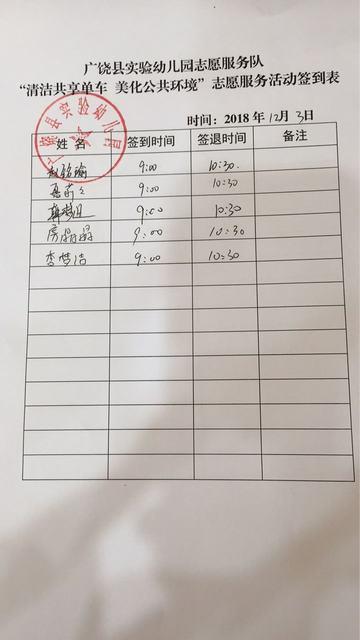 广饶县实验幼儿园志愿服务队
“清洁共享单车 美化公共环境”志愿服务活动签到表
时间：2018年12月3日
广饶县实验幼儿园
姓名 签到时间 签退时间 备注
9:00 10:30.
9:00 10:30
9:00 10:30
房晶晶 9:00 10:30
李梦洁 9:00 10:30